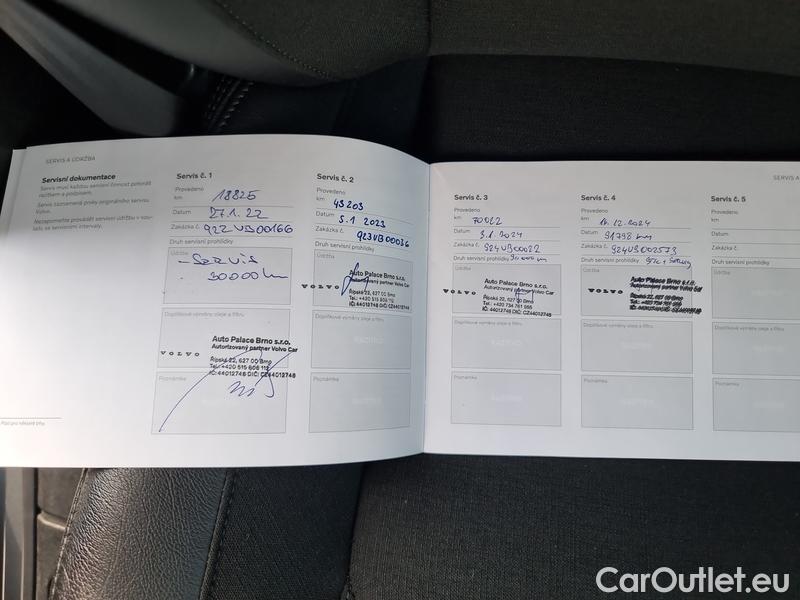 SERVIS A ÚDRŽBA
Servisní dokumentace
Servis musí každou servisní činnost potvrdit
razítkem a podpisem.
Servis zaznamená prvky originálního servisu
Volvo.
Nezapomeňte provádět servisní údržbu v sou-
ladu se servisními intervaly.
Servis č. 1
Provedeno
km 18825
Datum 27.1.22
Zakázka č. 922VB00166
Druh servisní prohlídky
Údržba
- SERVIS
30000 km
Doplňkové výměny oleje a filtru
VOLVO
Auto Palace Brno s.r.o.
Autorizovaný partner Volvo Car
Řipská 22, 627 00 Brno
Tel.: +420 515 606 112
IČ: 44012748 DIČ: CZ44012748
Poznámka
Servis č. 2
Provedeno
km 43203
Datum 5.1 2023
Zakázka č. 923VB00036
Druh servisní prohlídky
Údržba
VOLVO
Auto Palace Brno s.r.o.
Autorizovaný partner Volvo Car
Řipská 22, 627 00 Brno
IČ: 44012748 DIČ: CZ44012748
Doplňkové výměny oleje a filtru
Poznámka
Servis č. 3
Provedeno
km 70022
Datum 3.1.2024
Zakázka č. 924VB00022
Druh servisní prohlídky
Údržba
VOLVO
Auto Palace Brno s.r.o.
Autorizovaný partner Volvo Car
Řipská 22, 627 00 Brno
IČ: 44012748 DIČ: CZ44012748
Doplňkové výměny oleje a filtru
Poznámka
SERVIS A
Servis č. 4
Provedeno
km 16.12.2024
Datum 91798 km
Zakázka č. 924VB002573
Druh servisní prohlídky
Údržba
VOLVO
Auto Palace Brno s.r.o.
Autorizovaný partner Volvo Car
Řipská 22, 627 00 Brno
Doplňkové výměny oleje a filtru
Poznámka
Servis č. 5
Provedeno
km
Datum
Zakázka č.
Druh servisní prohlídky
Údržba
Doplňkové výměny oleje a filtru
Poznámka
CarOutlet.eu